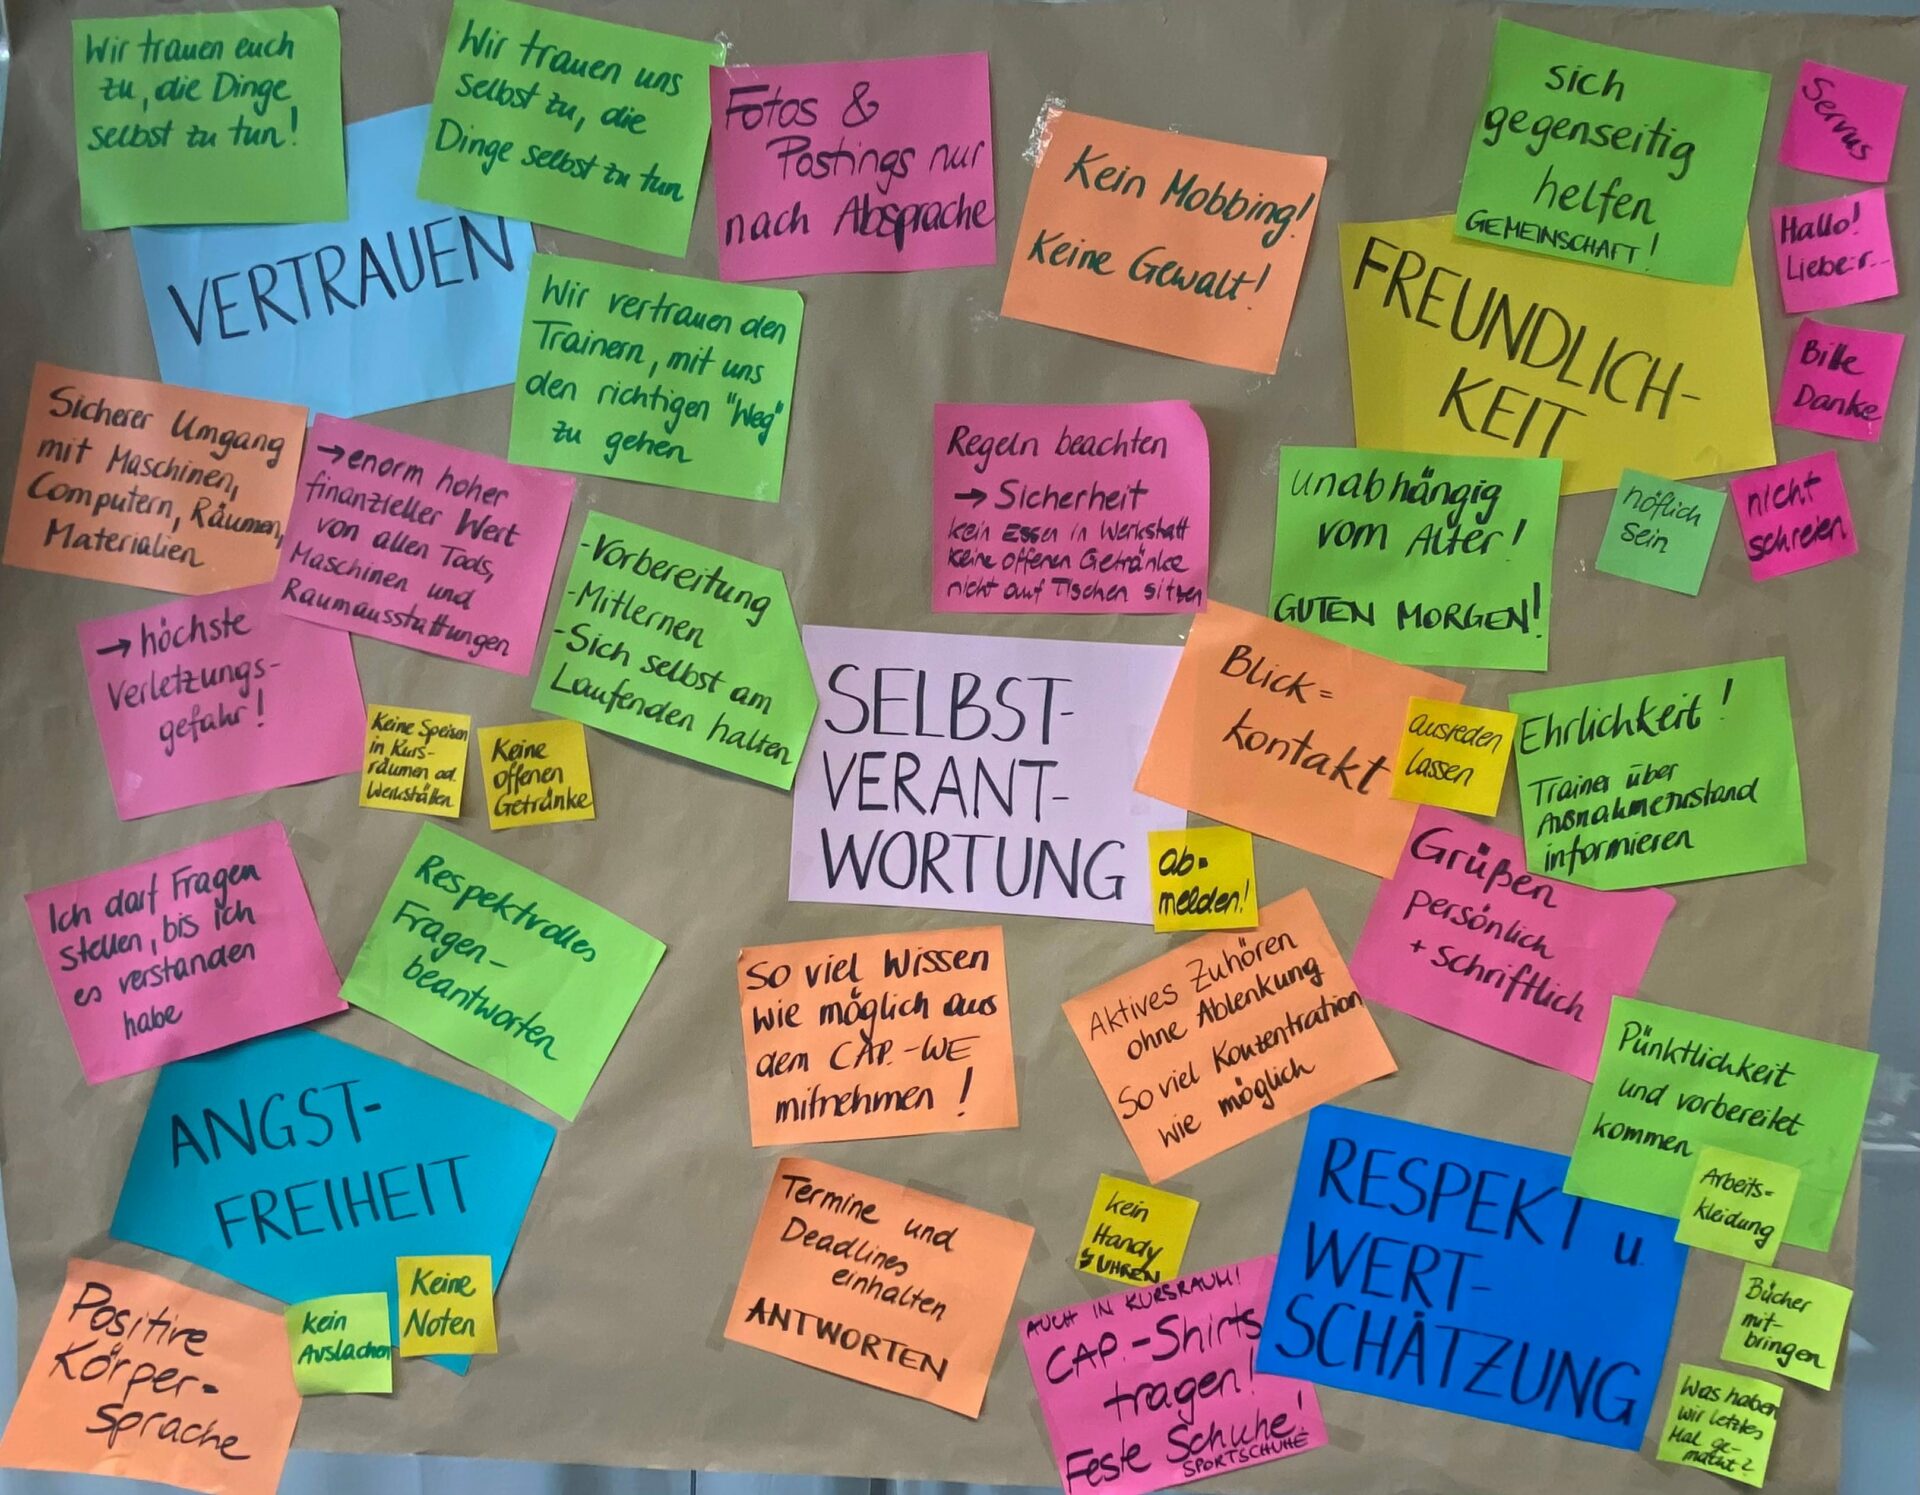 Wir trauen euch
zu, die Dinge
selbst zu tun!
Wir trauen uns
selbst zu, die
Dinge selbst zu tun
VERTRAUEN
Wir vertrauen den
Trainern, mit uns
den richtigen "Weg"
zu gehen
Fotos &
Postings nur
nach Absprache
Kein Mobbing!
Keine Gewalt!
sich
gegenseitig
helfen
GEMEINSCHAFT!
FREUNDLICH-
KEIT
Servus
Hallo!
Liebe:r...
Bitte
Danke
nicht
schreien
höflich
sein
unabhängig
vom Alter!
GUTEN MORGEN!
Sicherer Umgang
mit Maschinen,
Computern, Räumen,
Materialien
→ enorm hoher
finanzieller Wert
von allen Tools,
Maschinen und
Raumausstattungen
→ höchste
Verletzungs-
gefahr!
Keine Speisen
in Kurs-
räumen od.
Werkstätten
Keine
offenen
Getränke
-Vorbereitung
-Mitlernen
-Sich selbst am
Laufenden halten
Regeln beachten
→ Sicherheit
kein Essen in Werkstatt
keine offenen Getränke
nicht auf Tischen sitzen
SELBST-
VERANT-
WORTUNG
ab-
melden!
Blick=
kontakt
ausreden
lassen
Ehrlichkeit!
Trainer über
Ausnahmezustand
informieren
Grüßen
persönlich
+ schriftlich
Ich darf Fragen
stellen, bis ich
es verstanden
habe
Respektvolles
Fragen-
beantworten
ANGST-
FREIHEIT
Positive
Körper-
sprache
kein
Auslachen
Keine
Noten
So viel Wissen
wie möglich aus
dem CAP.-WE
mitnehmen!
Aktives Zuhören
ohne Ablenkung
So viel Konzentration
wie möglich
Termine und
Deadlines
einhalten
ANTWORTEN
kein
Handy
UHREN
AUCH IN KURSRAUM!
CAP.-Shirts
tragen!
Feste Schuhe!
SPORTSCHUHE
RESPEKT u.
WERT-
SCHÄTZUNG
Pünktlichkeit
und vorbereitet
kommen
Arbeits=
kleidung
Bücher
mit-
bringen
Was haben
wir letztes
Mal ge-
macht?